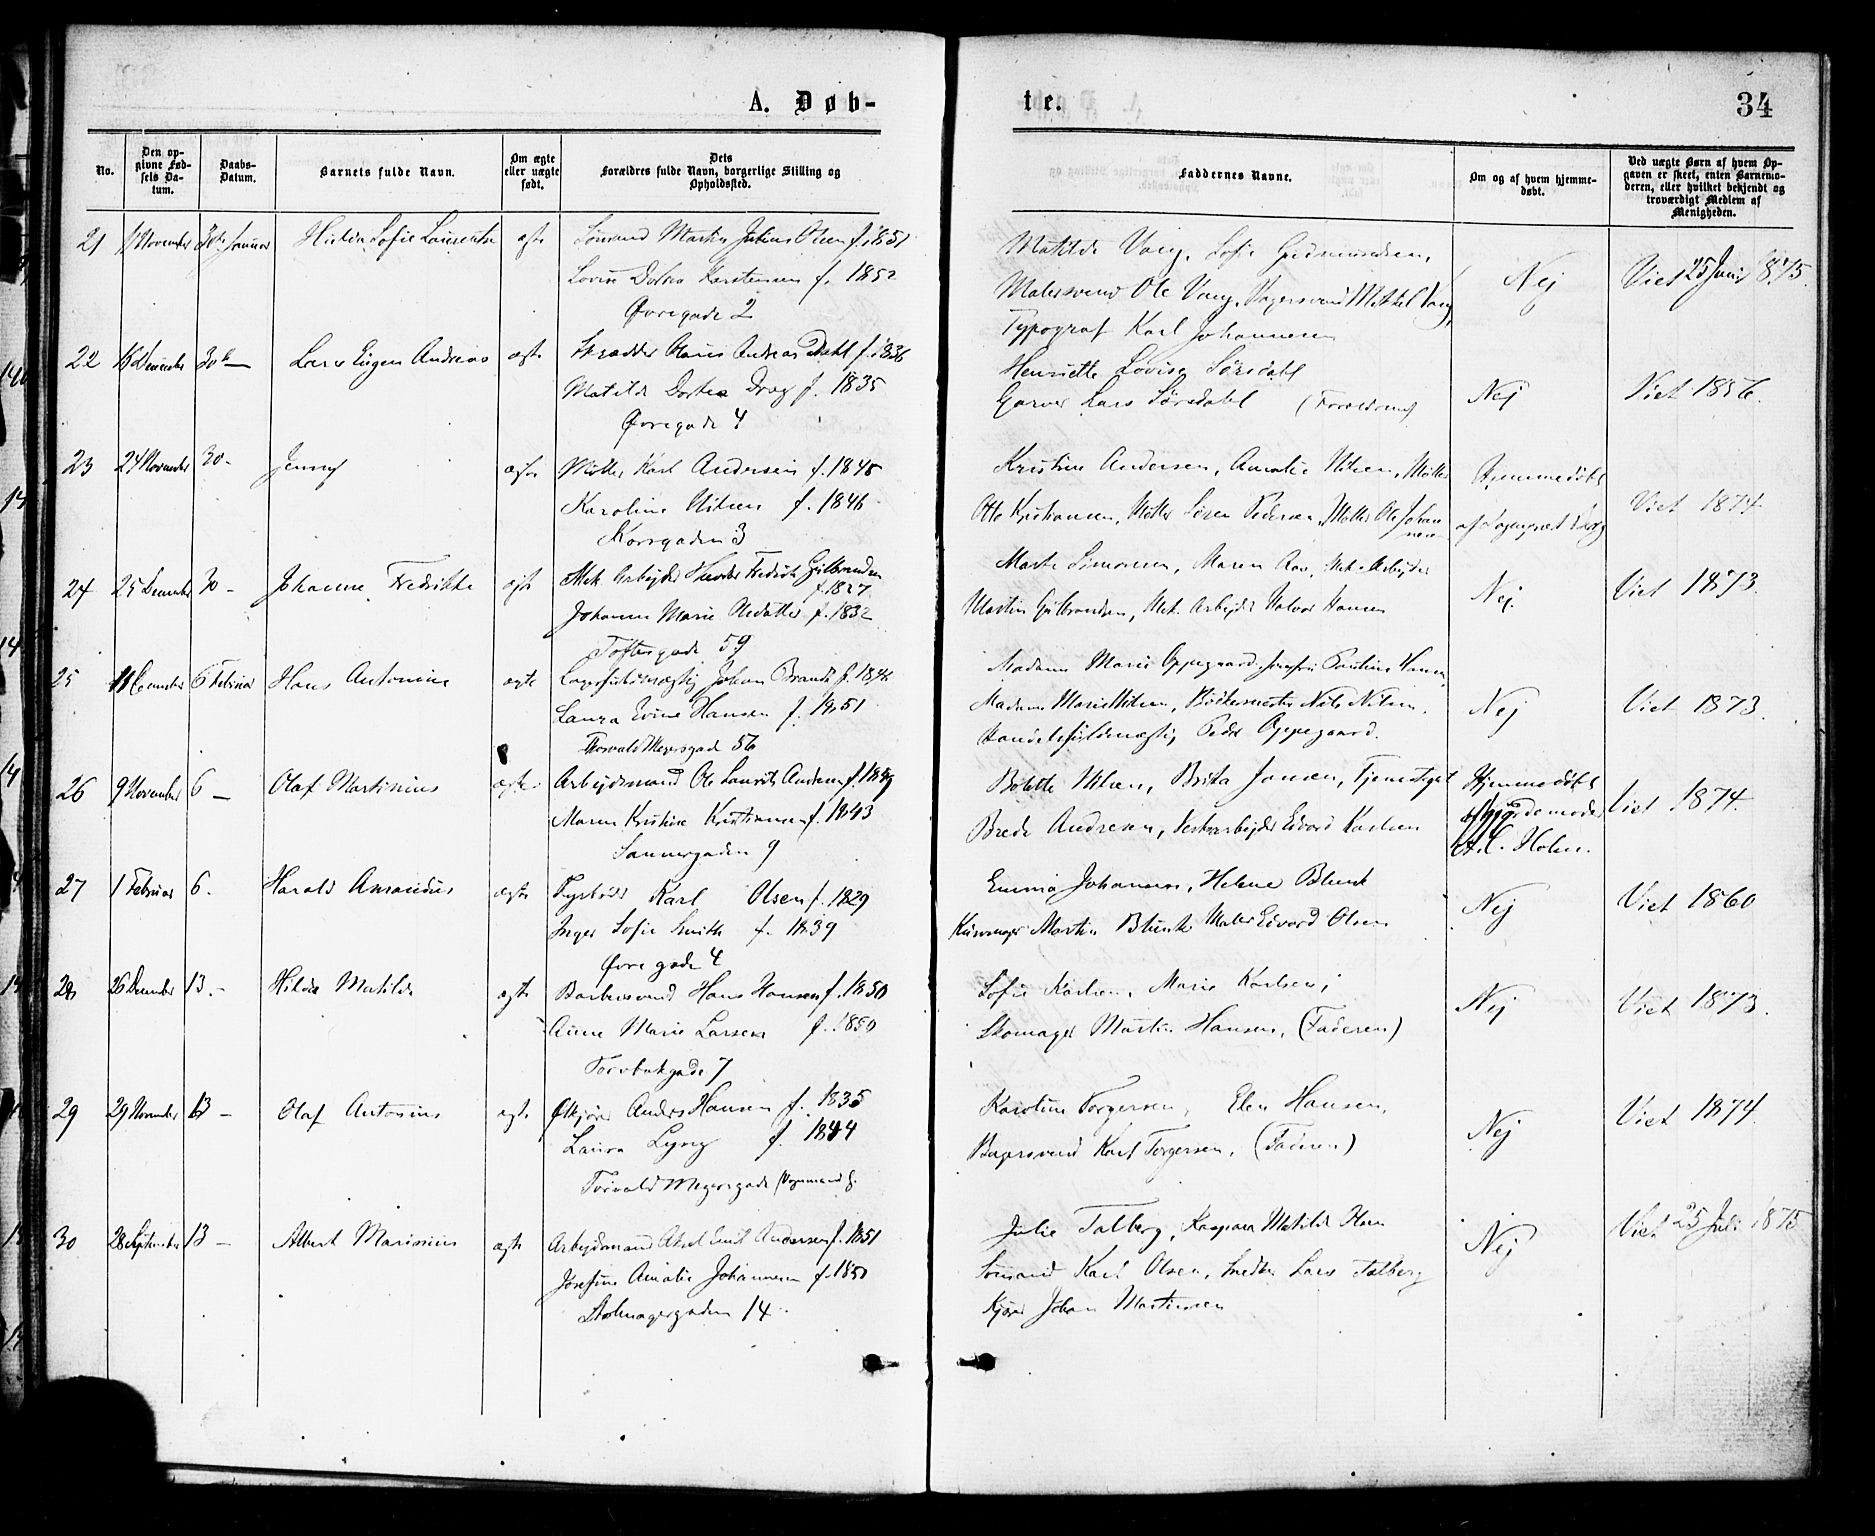 A. Døb-
te.
34
No.
Den op-
givne Fød-
sels Da-
tum.
Daabs-
Datum.
Barnets fulde Navn.
Om ægte
eller uægte
født.
Dets
Forældres fulde Navn, borgerlige Stilling og
Opholdssted.
Faddernes Navne.
Om og af hvem hjemme-
døbt.
Ved uægte Børn af hvem Op-
gaven er skeet, enten Barnemo-
deren, eller hvilket bekjendt og
troværdigt Medlem af
Menigheden.
21 November 30te Januar Hilda Sofie Laurentse ægte Sømand Martin Julius Olsen f. 1851
Lovise Dortea Karstensen f. 1852
Øvregade 2
Matilde Vang, Sofie Gudmundsen,
Malersvend Ole Vang, Mikkel Vang,
Typograf Karl Johannesen
Nej
Viet 25 Juni 1875.
22 December 30te — Lars Eugen Andreas ægte Skrædder Andreas Dahl f. 1836
Matilde Dortea Drog f. 1835
Øvregade 4
Henriette Lovise Sørsdahl
Garver Lars Sørsdahl (Forældrene)
Nej
Viet 1856.
23 24 November 30 - Jenny ægte Møller Karl Andersen f. 1845
Karoline Nilsen f. 1846
Korsgaden 3
Kristine Andersen, Amalie Nilsen, Møller
Otto Kristiansen, Møller Søren Pedersen, Møller Ole Johan
nesen
Hjemmedøbt
af Sogneprest
Viet 1874
24 25 December 30 - Johanne Fredrikke ægte Mek. Arbejder Fredrik Gulbrandsen
f. 1827
Johanne Marie Olsdatter f. 1832
Toftesgade 59
Marte Simonsen, Maren Aas, Mek. Arbejder
Martin Gulbrandsen, Mek. Arbejder Halvor Hansen
Nej.
Viet 1873.
25 11 December 6 Februar Hans Antonius ægte Johan Brandt f. 1846
Laura Evine Hansen f. 1851
Thorvald Meyersgade 56
Madame Marie Oppegaard, Jomfru Pauline Hansen,
Madame Marie Nilsen, Bødkermester Nils Nilsen,
Handelsfuldmægtig Peder Oppegaard.
Nej
Viet 1873.
26 9 November 6 — Olaf Martinius ægte Arbejdsmand Ole Laurits Andersen f. 1849
Maren Kristine Kristiansen f. 1843
Sannergaden 9
Bolette Nilsen, Brita Jansen, Tjenestepige
Brede Andresen, Verksarbejder Edvard Karlsen
Hjemmedøbt
af Gjordemoder
A. C. Holm.
Viet 1874.
27 1 Februar 6. Harald Amandus ægte Fyrbøder Karl Olsen f. 1829
Inger Sofie Smith f. 1839
Øvregade 4
Emma Johansen, Helene Blunk
Martin Blunk Maler Edvard Olsen
Nej
Viet 1860
28 26 December 13. - Hilda Matilde ægte Barbersvend Hans Hansen f. 1850
Anne Marie Larsen f. 1850
Torvbakgade 7
Sofie Karlsen, Marie Karlsen,
Skomager Martin Hansen, (Faderen)
Nej
Viet 1873.
29 29 November 13 — Olaf Antonius ægte Anders Hansen f. 1835
Laura Lyng f. 1844
Torvald Meyersgade
Karoline Torgersen, Elen Hansen,
Bagersvend Karl Torgersen, (Faderen)
Nej
Viet 1874.
30 28 September 13 — Albert Marinius ægte Arbejdsmand Aksel Emil Andersen f. 1851
Josefine Amalie Johannesen f. 1850
Stolmagergaden 14
Julie Talberg, Kaspara Matilde
Sømand Karl Olsen, Smed Lars Talberg
Kjører Johan Martinsen
Nej
Viet 25 Juli 1875